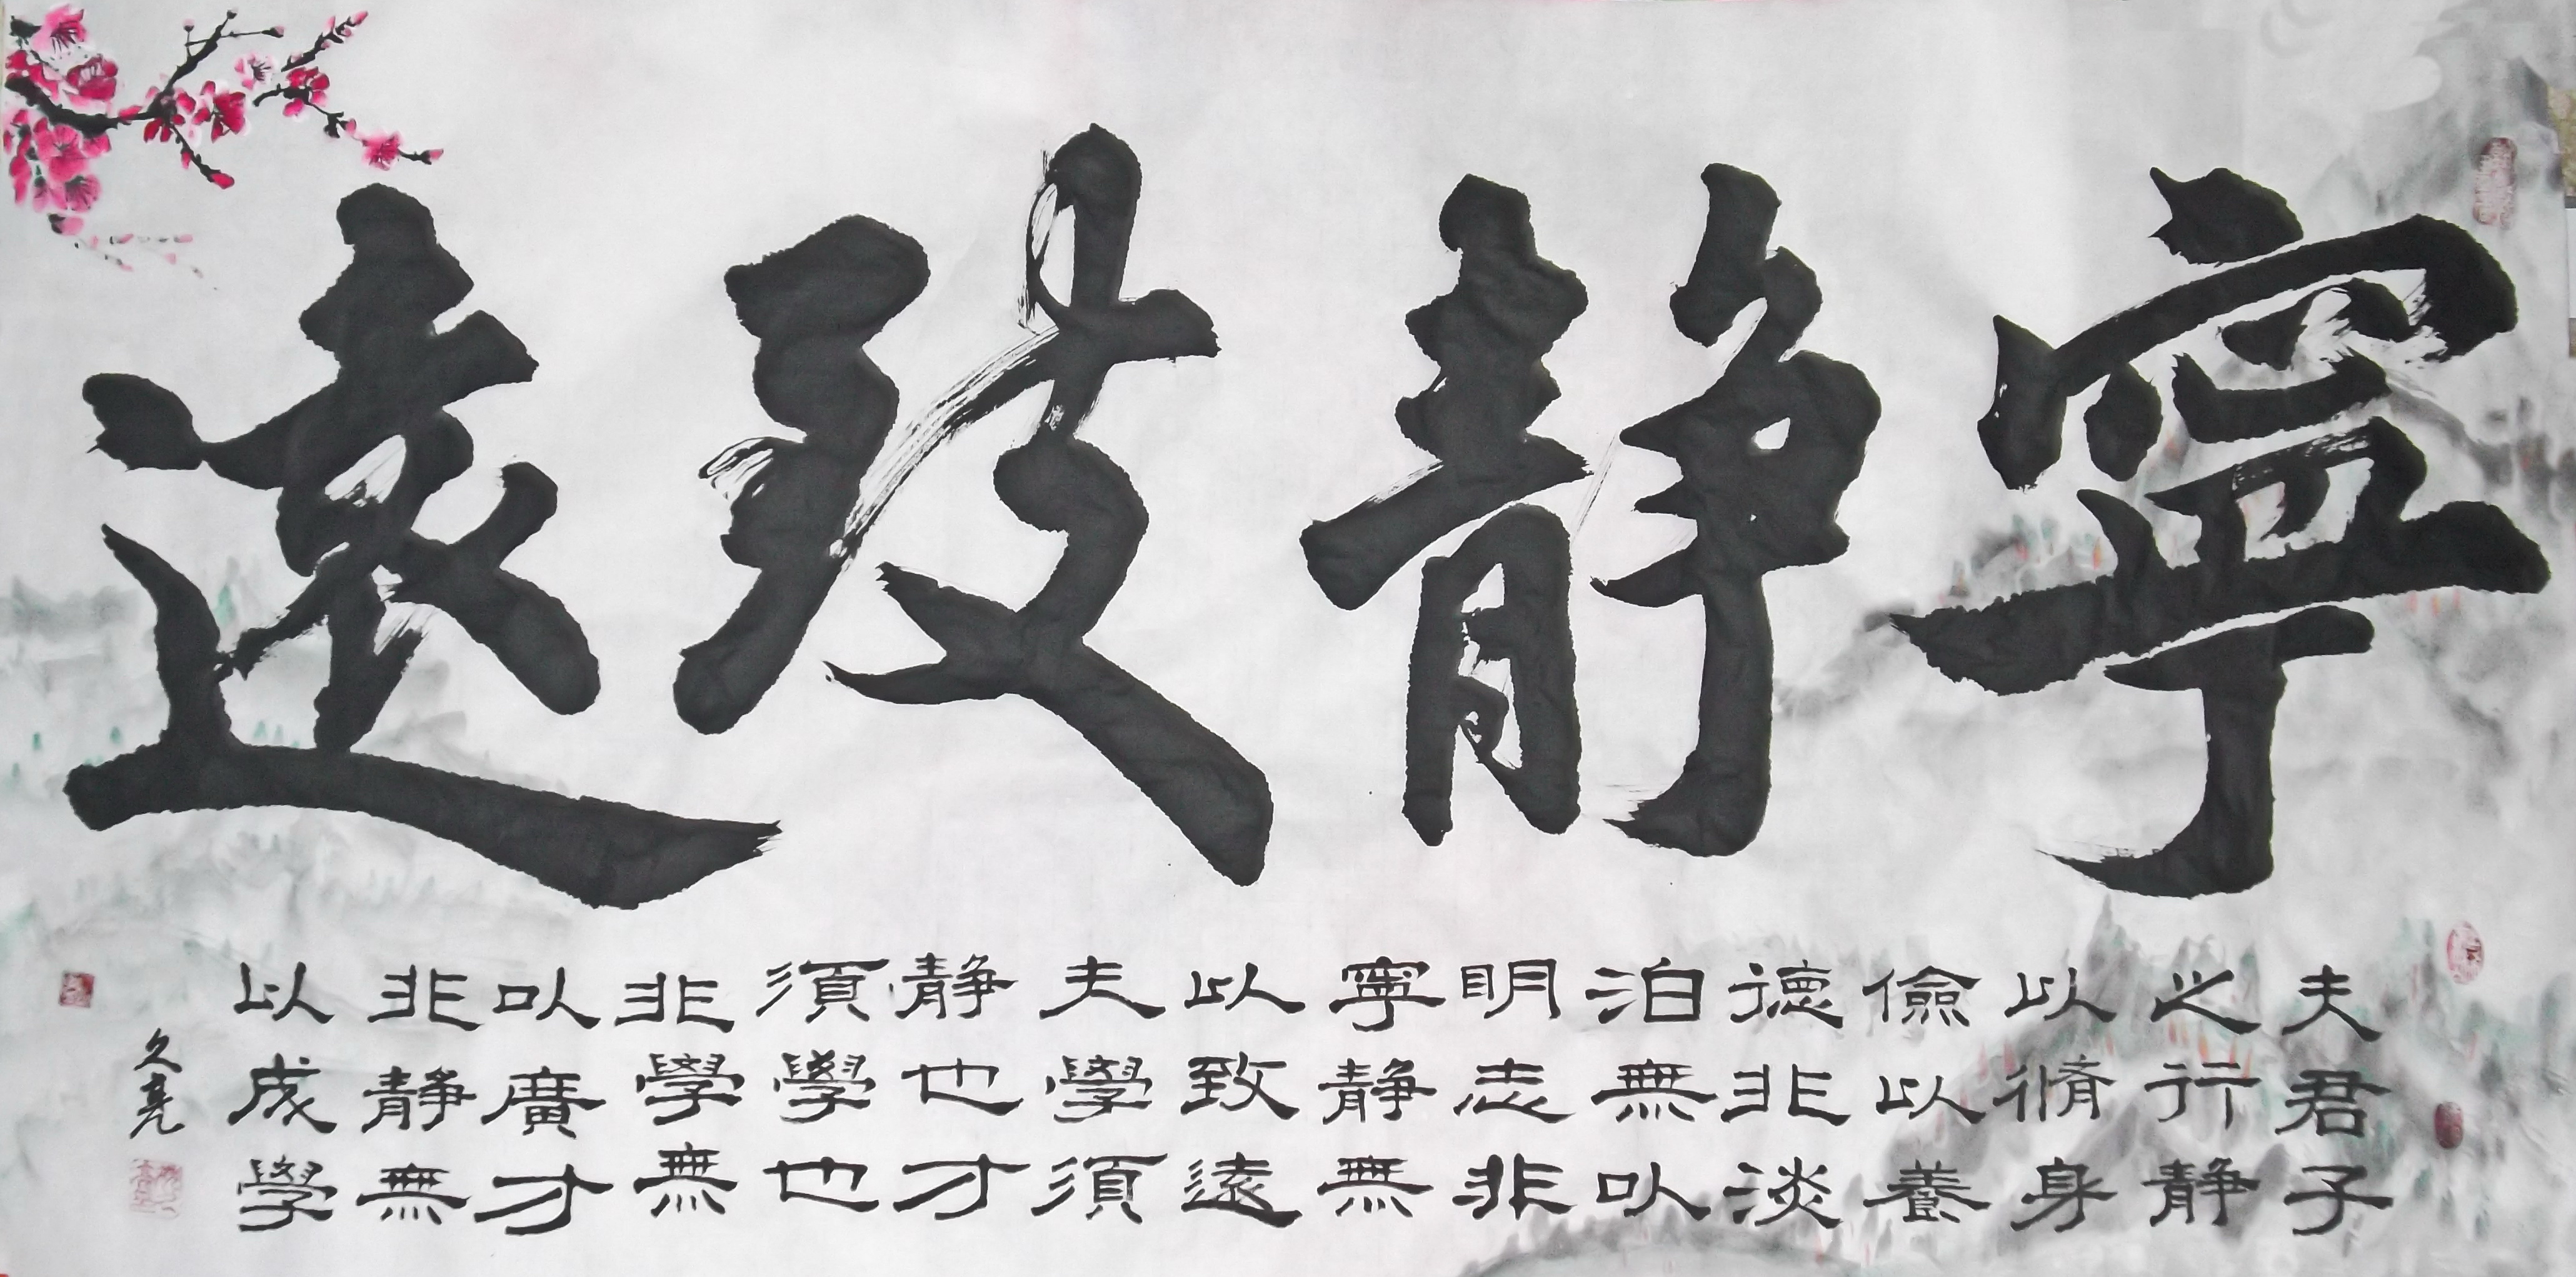 寧靜致遠
夫君子
之行静
以脩身
儉以養
德非淡
泊無以
明志非
寧静無
以致遠
夫學須
静也才
須學也
非學無
以廣才
非静無
以成學
久堯